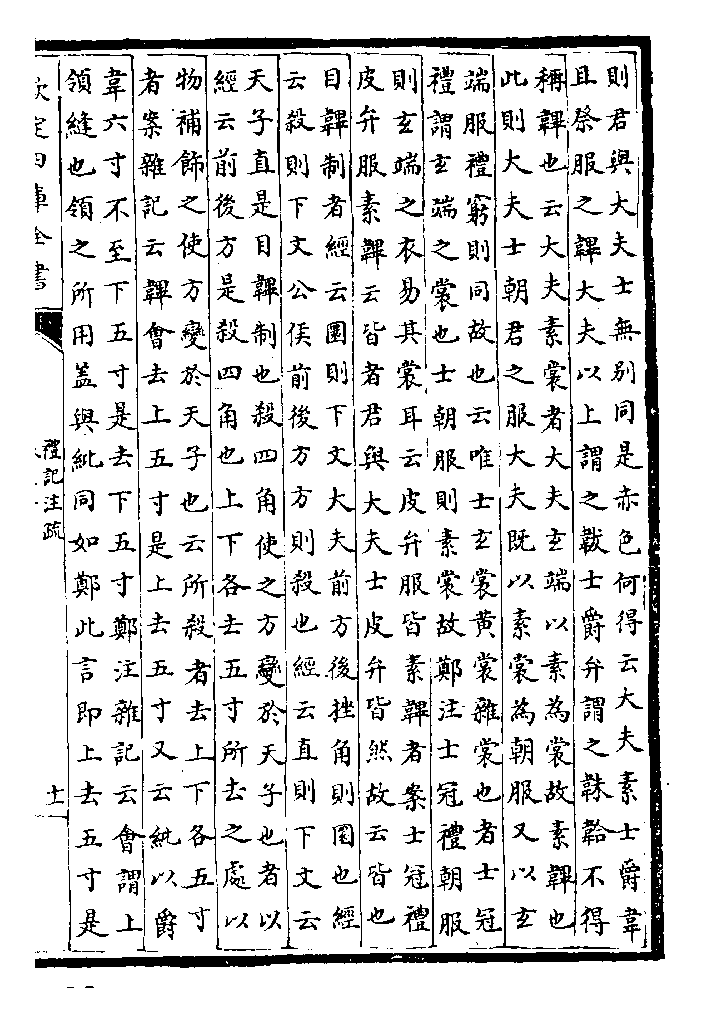 則君與大夫士無別同是赤色何得云大夫素士爵韋
且祭服之韠大夫以上謂之韍士爵弁謂之韎韐不得
稱韠也云大夫素裳者大夫玄端以素為裳故素韠也
此則大夫士朝君之服大夫既以素裳為朝服又以玄
端服禮窮則同故也云唯士玄裳黃裳雜裳也者士冠
禮謂玄端之裳也士朝服則素裳故鄭注士冠禮朝服
則玄端之衣易其裳耳云皮弁服皆素韠者案士冠禮
皮弁服素韠云皆者君與大夫士皮弁皆然故云皆也
目韠制者經云圜則下文大夫前方後挫角則圜也經
云殺則下文公侯前後方方則殺也經云直則下文云
天子直是目韠制也殺四角使之方變於天子也者以
經云前後方是殺四角也上下各去五寸所去之處以
物補飾之使方變於天子也云所殺者去上下各五寸
者案雜記云韠會去上五寸是上去五寸又云紕以爵
韋六寸不至下五寸是去下五寸鄭注雜記云會謂上
領縫也領之所用蓋與紕同如鄭此言即上去五寸是
欽定四庫全書
禮記注疏
十一